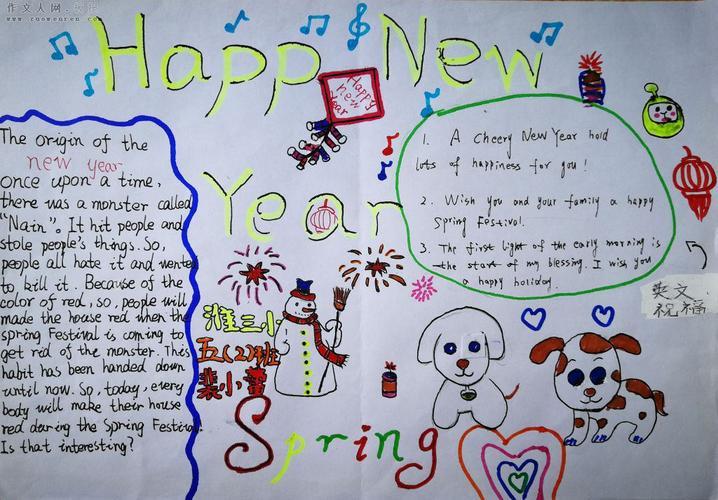 作文人网
www.zuowenren.com
Happ New
Year
Happy
new
Year
The origin of the
new year
once upon a time,
there was a monster called
"Nain". It hit people and
stole people's things. So,
people all hate it and wented
to kill it. Because of the
color of red, so, people will
made the house red when the
spring Festival is coming to
get rid of the monster. This
habit has been handed down
until now. So, today, every
body will make their house
red daring the Spring Festival.
Is that interesting?
1. A Cheery New Year hold
lots of happiness for you!
2. Wish you and your family a happy
Spring Festival.
3. The first light of the early morning is
the start of my blessing. I wish you
a happy holiday.
英文
祝福
淮三小
五(2)班
裴小蕾
Spring